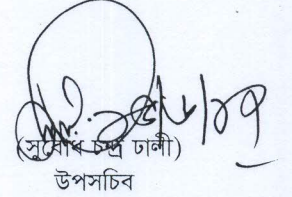 (সুবোধ চন্দ্র ঢালী)
উপসচিব